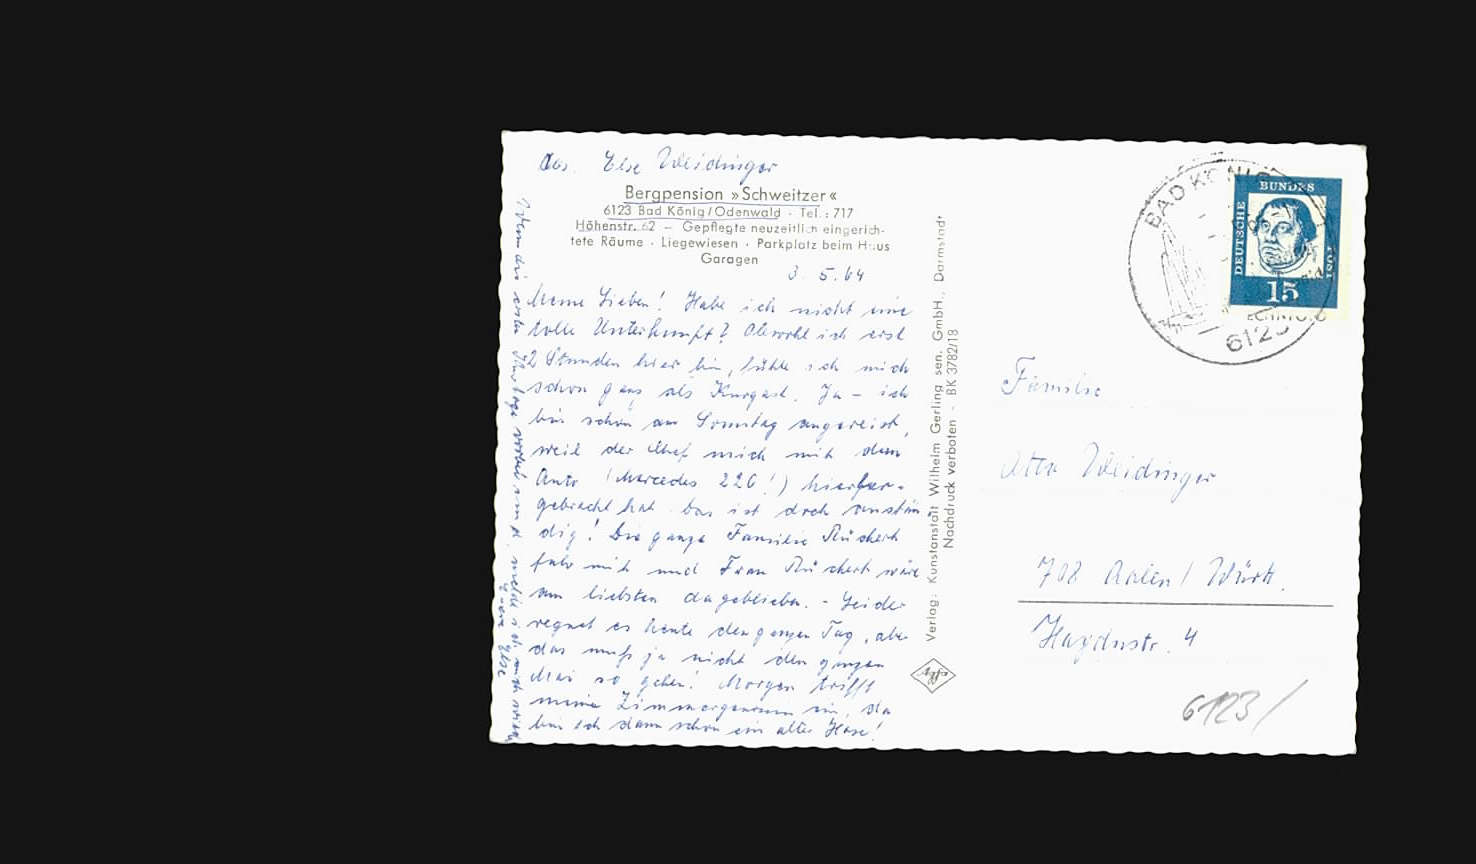 Abs. Else Weidinger
Bergpension »Schweitzer«
6123 Bad König/Odenwald · Tel.: 717
Höhenstr. 62 – Gepflegte neuzeitlich eingerich-
tete Räume · Liegewiesen · Parkplatz beim Haus
Garagen
3. 5. 64
Meine Lieben! Habe ich nicht eine
tolle Unterkunft? Obwohl ich erst
2 Stunden hier bin, fühle ich mich
schon ganz als Kurgast. Ja – ich
bin schon am Sonntag angereist,
weil der Chef mich mit dem
Auto (Mercedes 220!) hierher-
gebracht hat. Das ist doch anstän-
dig! Die ganze Familie Rückert
fuhr mit und Frau Rückert wäre
am liebsten dageblieben. – Leider
regnet es heute den ganzen Tag, aber
das muß ja nicht den ganzen
Mai so gehen! Morgen trifft
meine Zimmergenossin ein, da
bin ich dann schon ein alter Hase!
Wenn die ersten vorbei sind, melde ich mich wieder
Eure Else
Verlag: Kunstanstalt Wilhelm Gerling sen. GmbH., Darmstadt
Nachdruck verboten - BK 3782/18
agfa
BAD KÖNIG
6123
DEUTSCHE
BUNDES
POST
15
Familie
Otto Weidinger
708 Aalen / Württ.
Haydnstr. 4
6123/